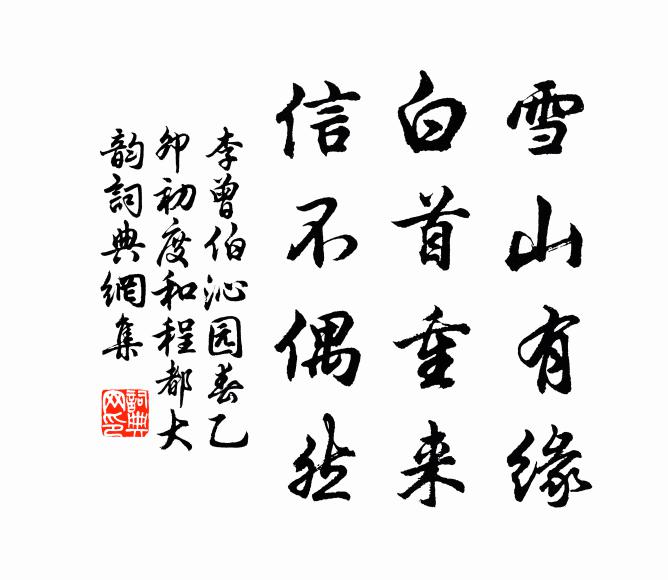 雪山有缘
白首重来
信不偶然
李曾伯沁园春乙
卯初度和程都大
韵词典網集
詞典
网印